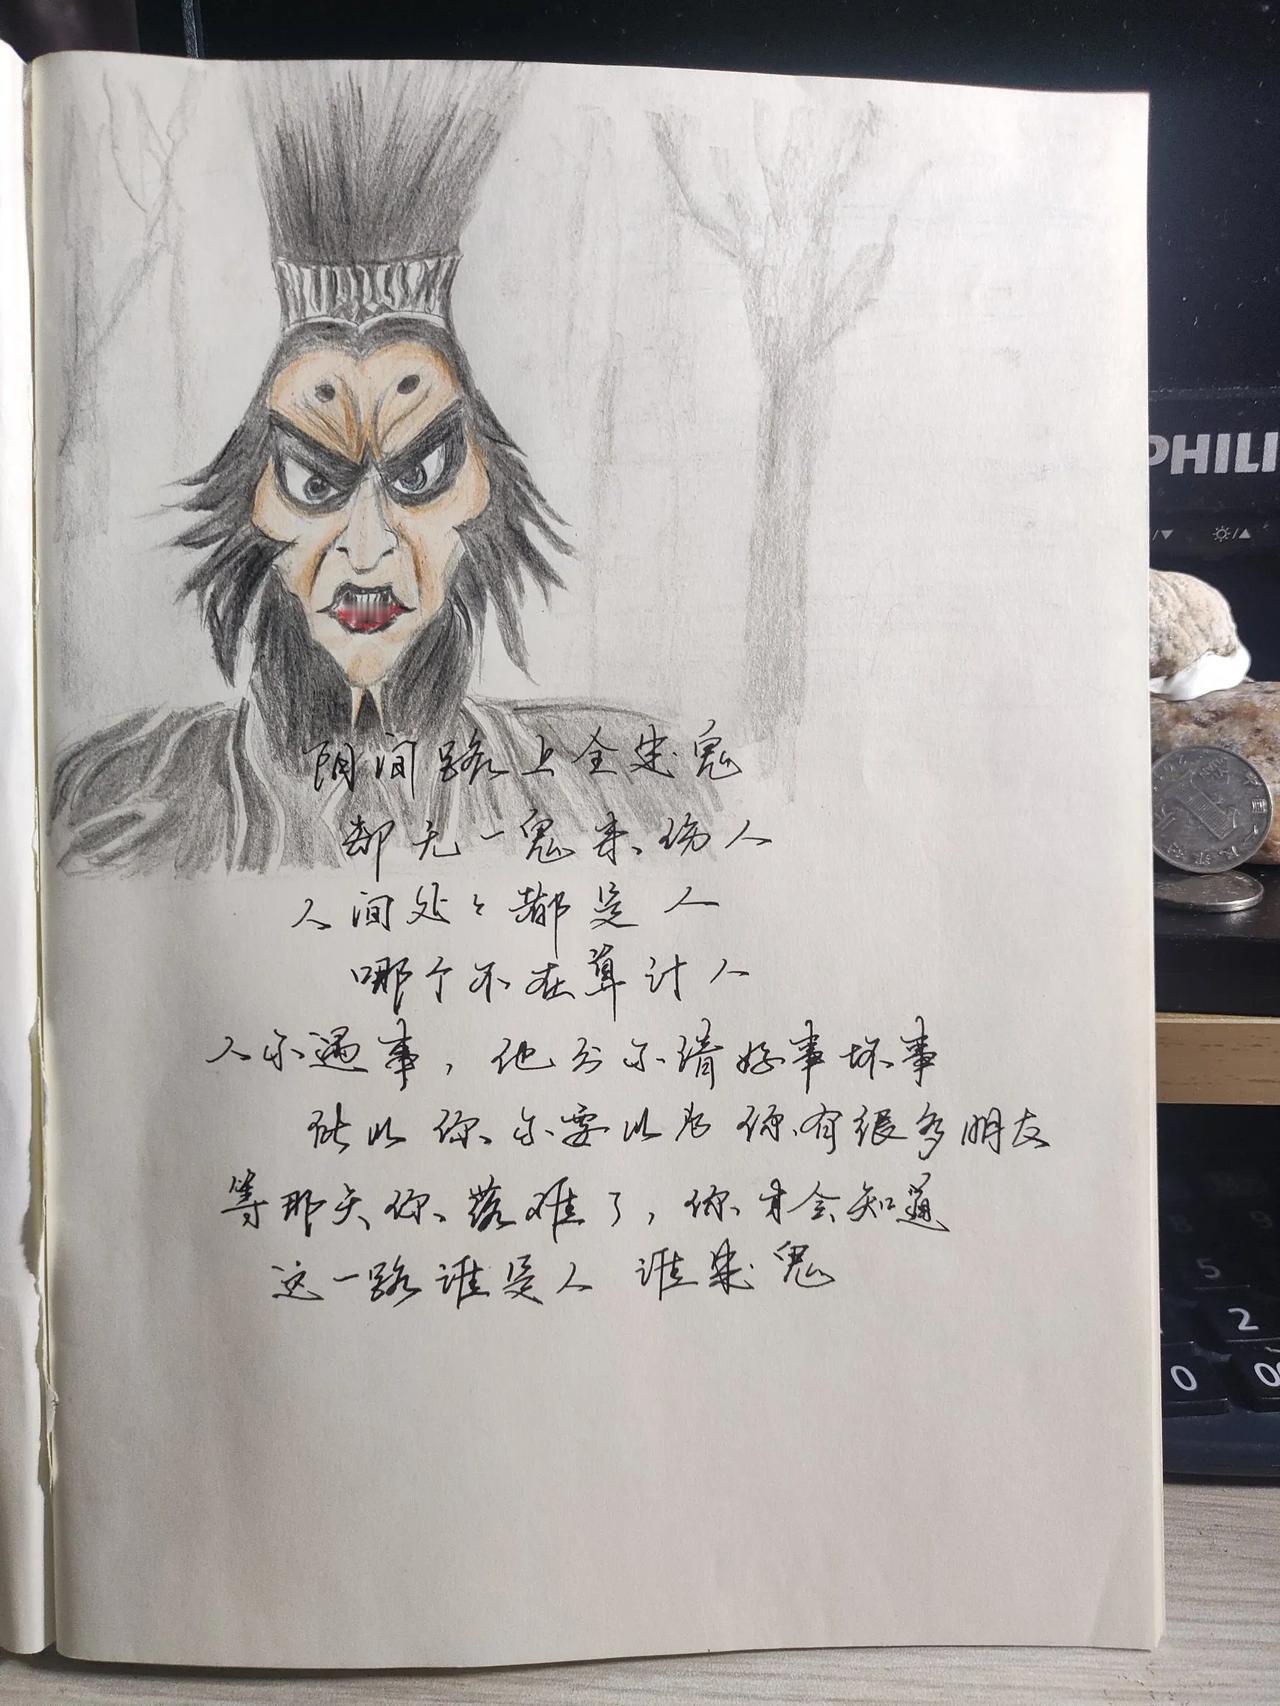 阴间路上全是鬼
却无一鬼来伤人
人间处々都是人
哪个不在算计人
人不遇事，他分不清好事坏事
所以你不要以为你有很多朋友
等那天你落难了，你才会知道
这一路谁是人 谁是鬼
PHILI
5
2
0
00